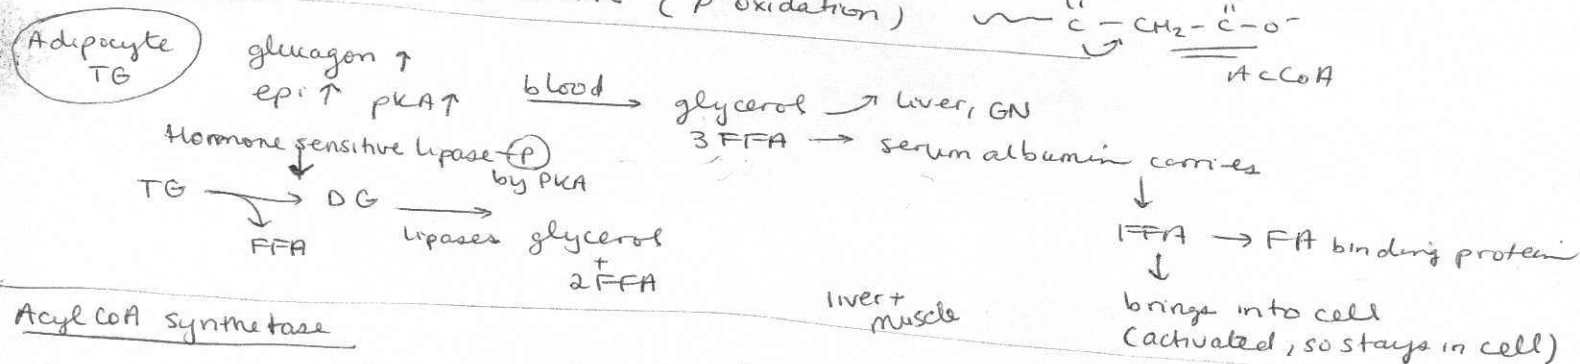 (β oxidation)
~ C – CH2 – C – O⁻
AcCoA
Adipocyte
TG
glucagon ↑
epi ↑ PKA ↑
blood → glycerol ↗ liver, GN
3 FFA → serum albumin carries
Hormone sensitive lipase – P
by PKA
TG → DG → glycerol
lipases
FFA
+
2 FFA
↓
FFA → FA binding protein
↓
brings into cell
(activated, so stays in cell)
liver +
muscle
Acyl CoA synthetase